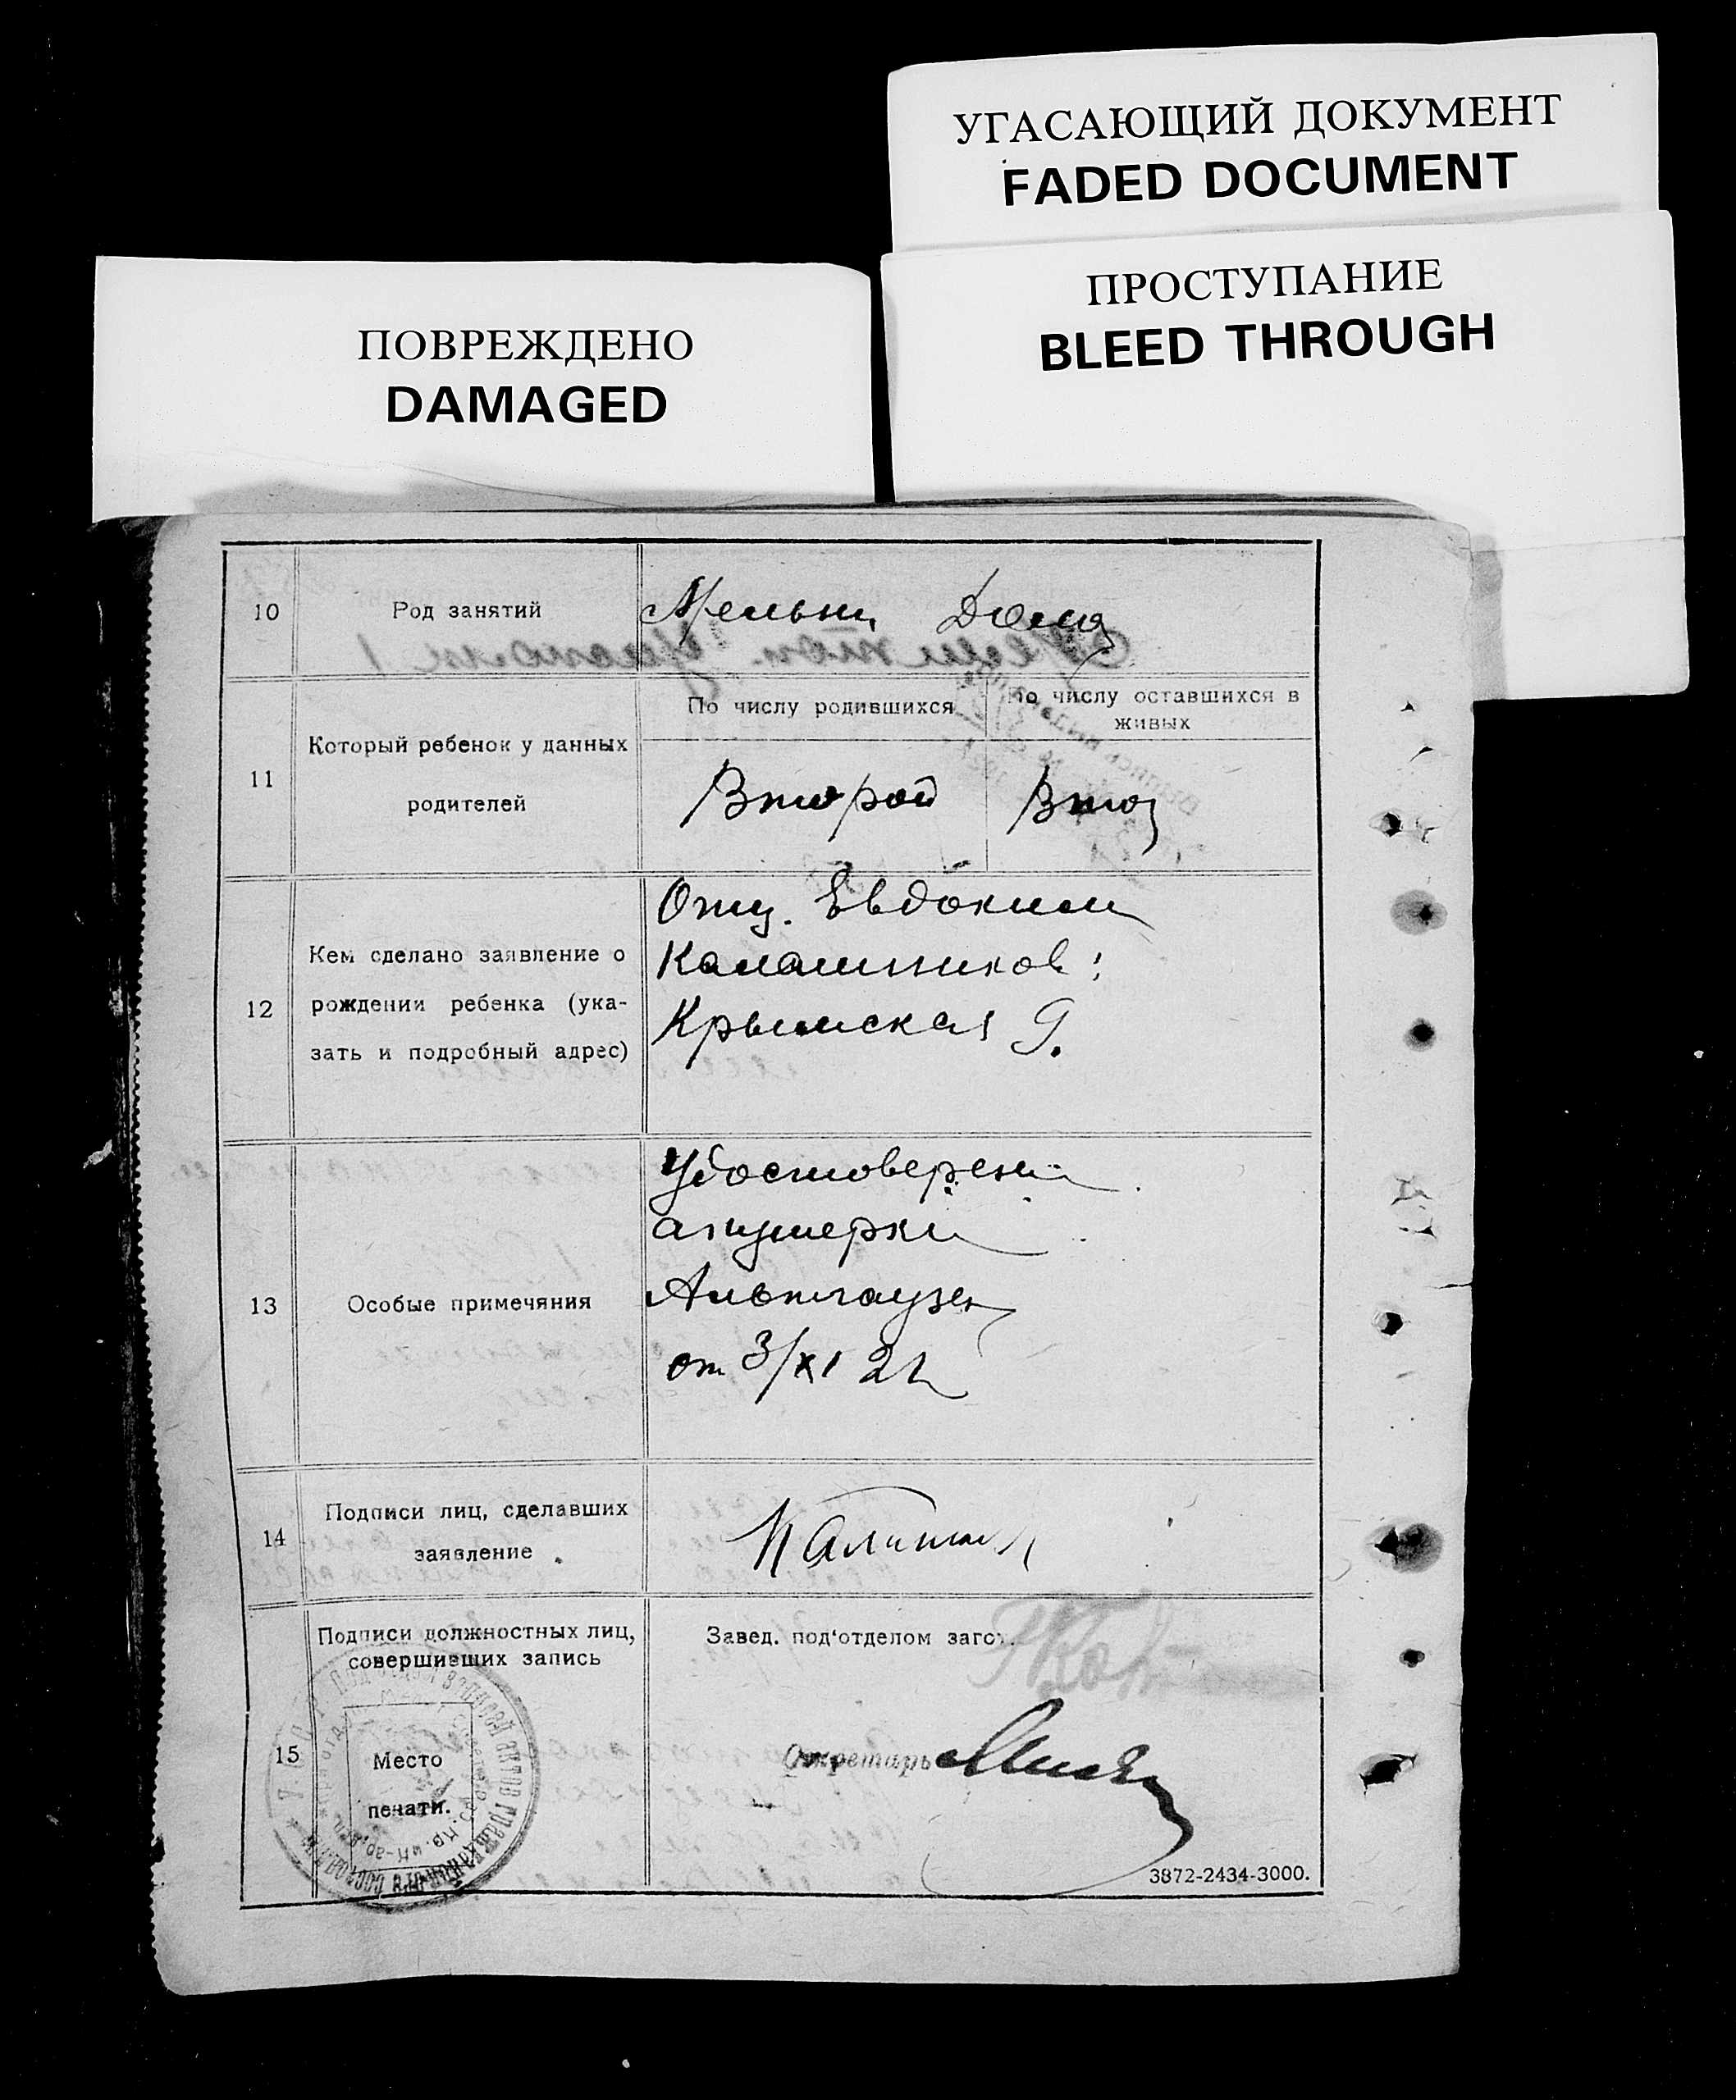 УГАСАЮЩИЙ ДОКУМЕНТ
FADED DOCUMENT
ПРОСТУПАНИЕ
BLEED THROUGH
ПОВРЕЖДЕНО
DAMAGED
10
Род занятий
Мельни Дома
11
Который ребенок у данных
родителей
По числу родившихся
По числу оставшихся в
живых
Второй
Втор
12
Кем сделано заявление о
рождении ребенка (ука-
зать и подробный адрес)
Отц. Евдоким
Калашников;
Крымская 9.
13
Особые примечяния
Удостоверени
акушерки
Альтгаузен
от 3/XI 21
14
Подписи лиц, сделавших
заявление
15
Подписи должностных лиц,
совершивших запись
Место
печати.
Завед. под'отделом загс.
Секретарь
3872-2434-3000.